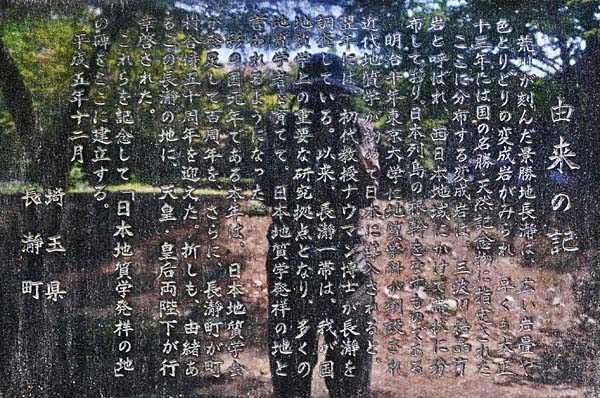 由来の記
荒川が刻んだ景勝地長瀞は、広い岩畳や
色とりどりの変成岩がみられ、早くも大正
十三年には国の名勝・天然記念物に指定された
ここに分布する変成岩は、三波川結晶片
岩と呼ばれ、西日本地域にかけて帯状に分
布しており日本列島の根幹をなすものである
明治十年東京大学に地質学科が創設され
近代地質学が 日本に導入されると、
翌十 初代教授ナウマン博士が長瀞を
調査している。以来、長瀞一帯は、我が国
地質学上の重要な研究拠点となり、多くの
地質学者を育てて、日本地質学発祥の地と
言われるようになった
の国元年である本年は、日本地質学会
が発足して百周年を、さらに、長瀞町が町
村合併五十周年を迎えた。折しも、由緒あ
るこの長瀞の地に、天皇・皇后両陛下が行
幸啓された。
これらを記念して「日本地質学発祥の地」
の碑をここに建立する。
平成五年十二月
埼玉県
長瀞町